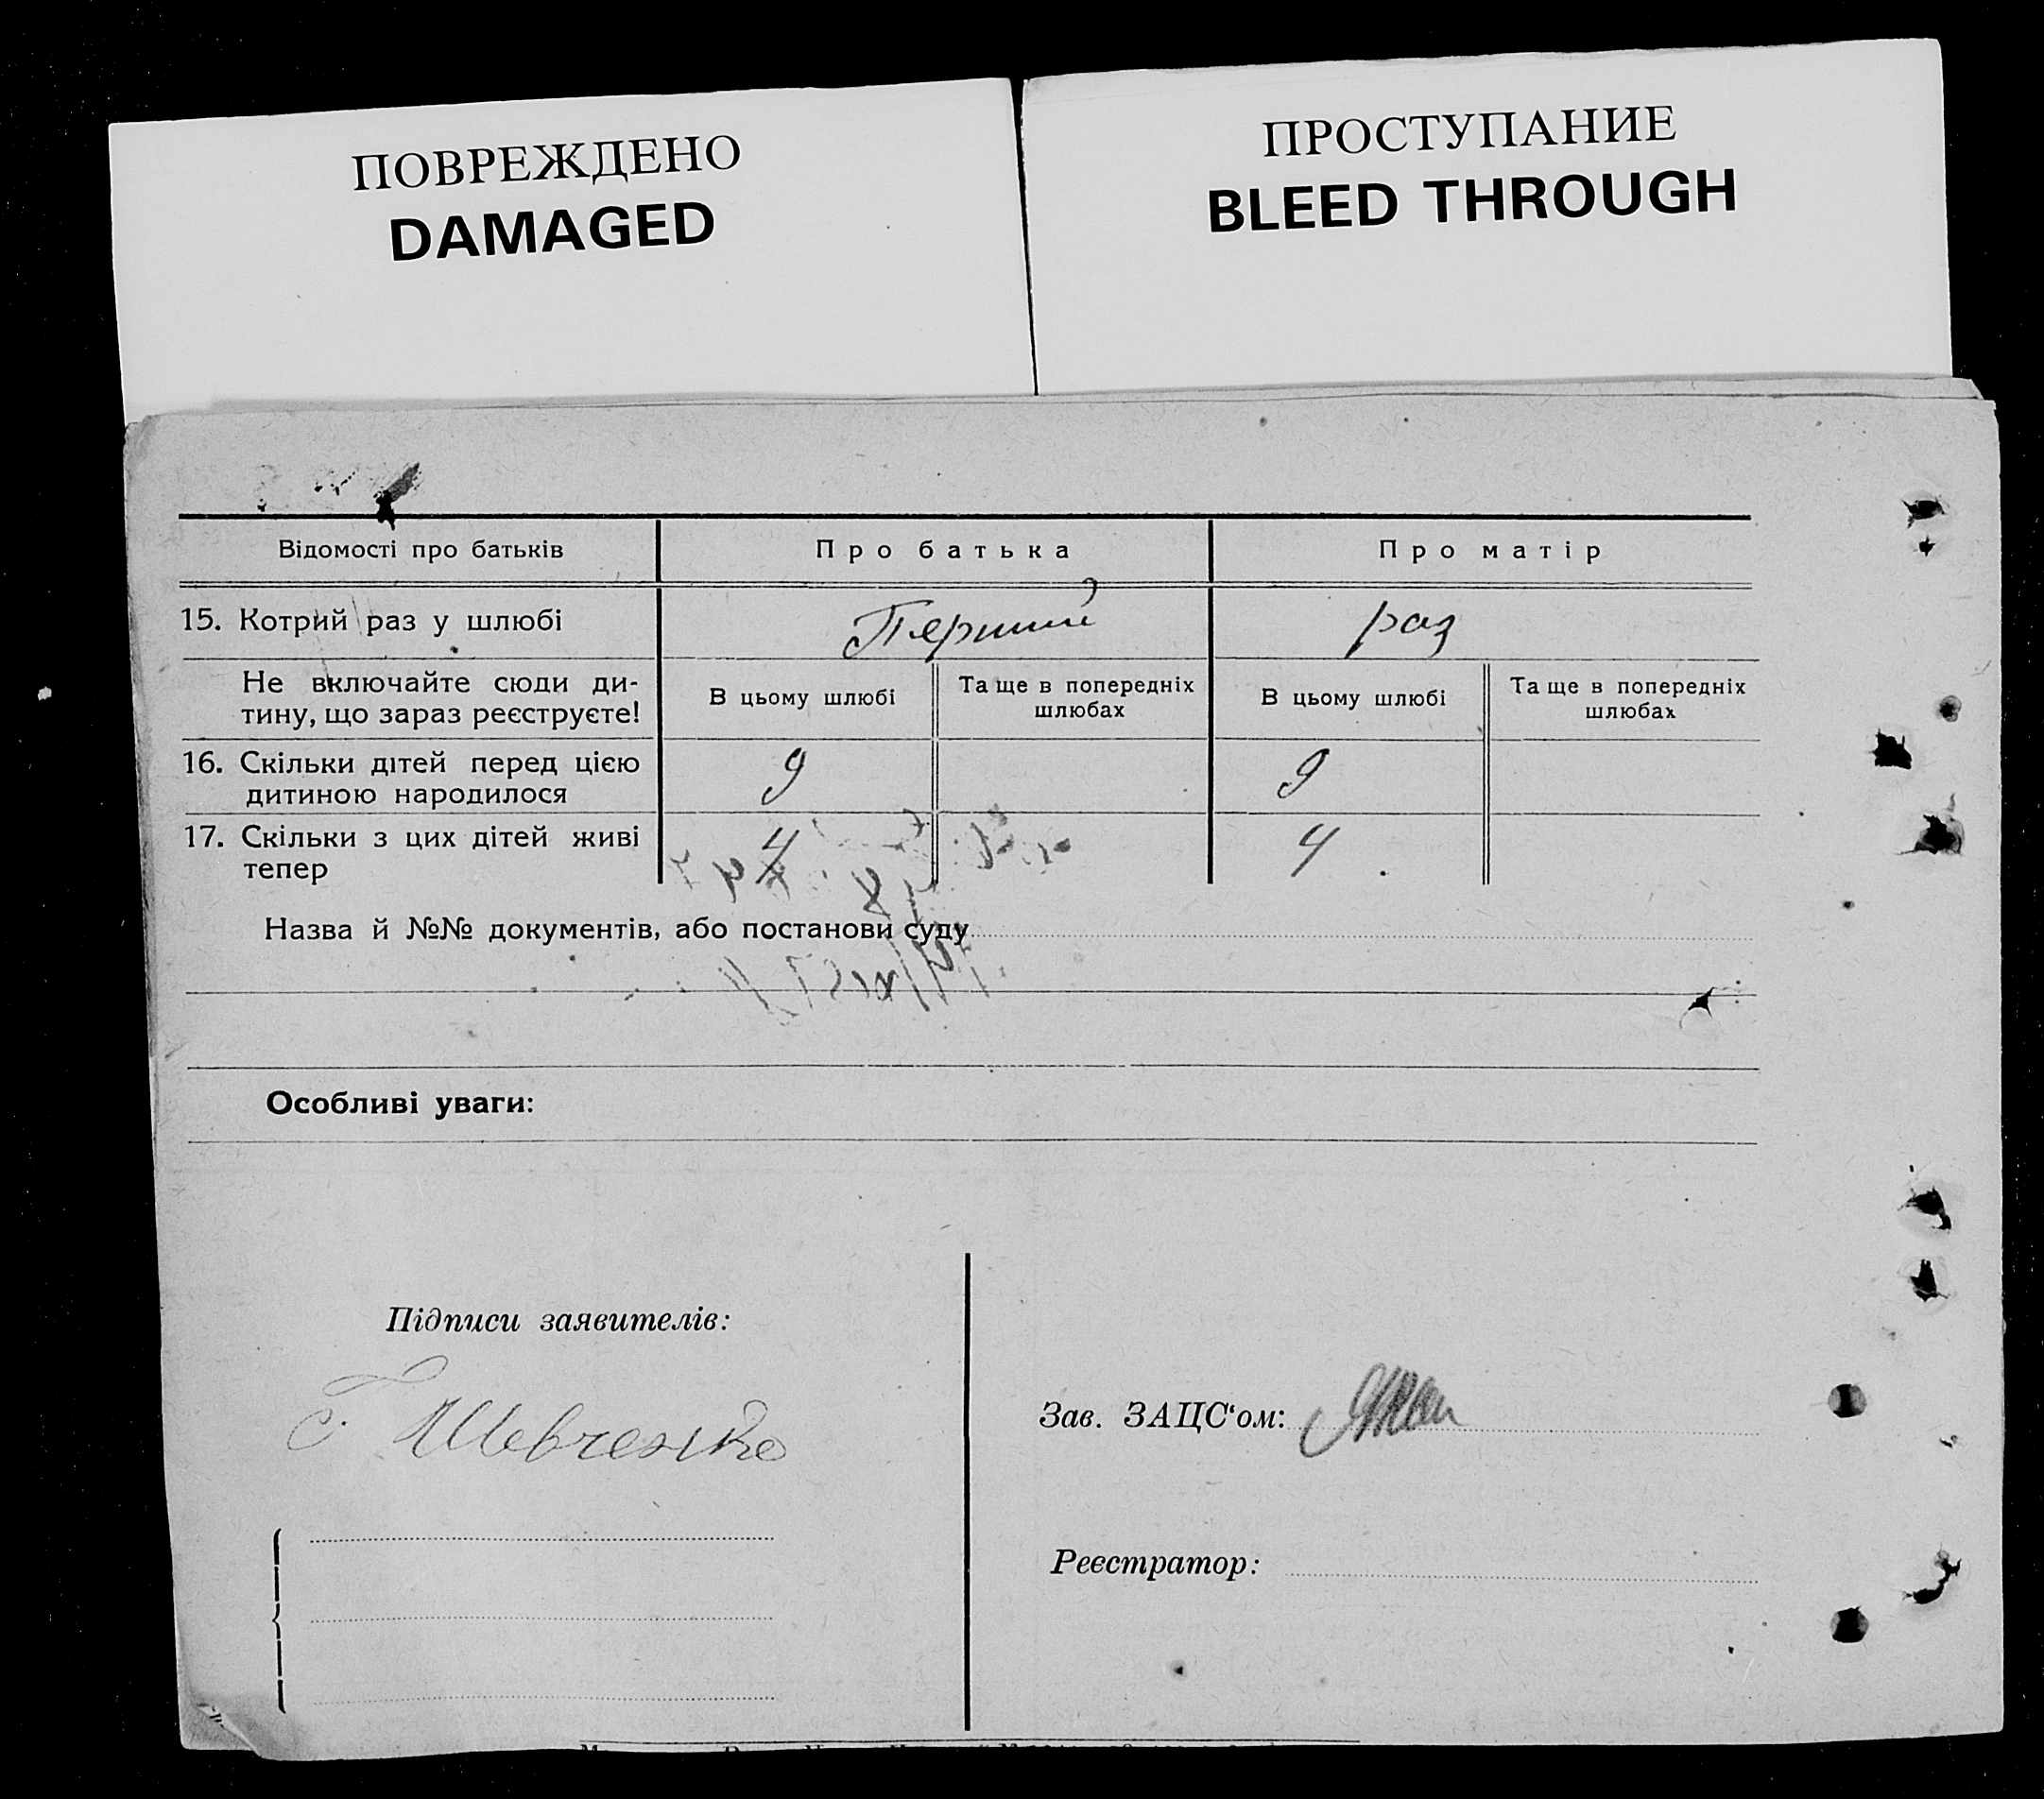 ПОВРЕЖДЕНО
DAMAGED
ПРОСТУПАНИЕ
BLEED THROUGH
Відомості про батьків
Про батька
Про матір
15. Котрий раз у шлюбі
Перший
раз
Не включайте сюди ди-
тину, що зараз реєструєте!
В цьому шлюбі
Та ще в попередніх
шлюбах
В цьому шлюбі
Та ще в попередніх
шлюбах
16. Скільки дітей перед цією
дитиною народилося
9
9
17. Скільки з цих дітей живі
тепер
4
4
Назва й №№ документів, або постанови суду
Особливі уваги:
Підписи заявителів:
Г. Шевченко
Зав. ЗАЦС‘ом:
Реєстратор: